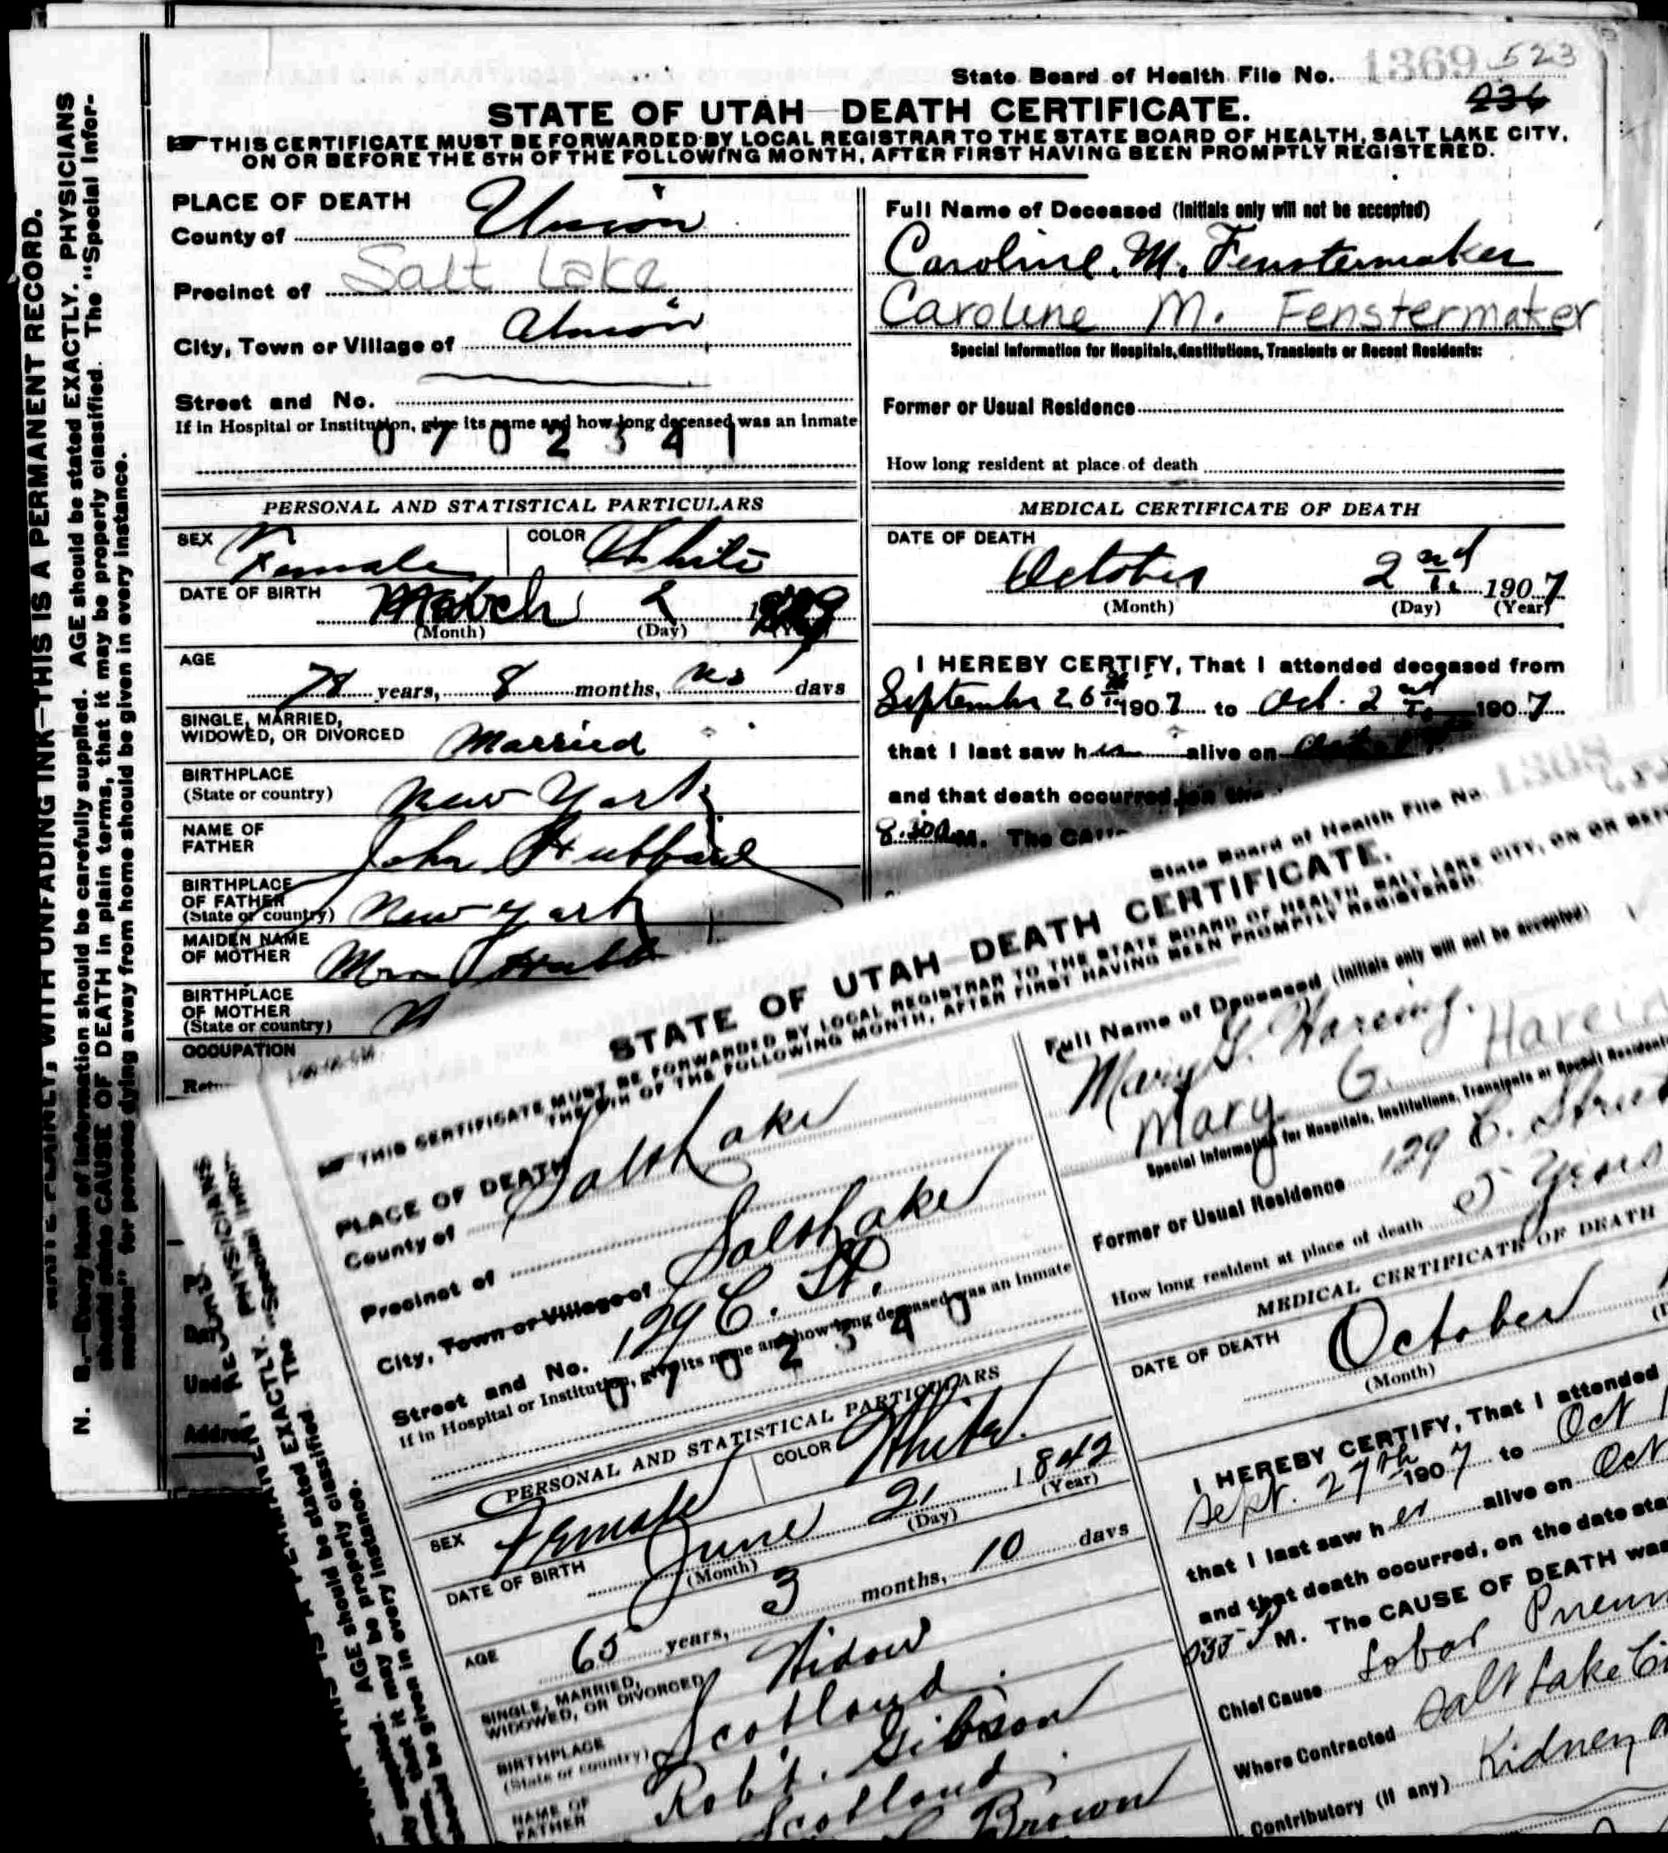 State Board of Health File No. 1369 523
236
STATE OF UTAH—DEATH CERTIFICATE.
THIS CERTIFICATE MUST BE FORWARDED BY LOCAL REGISTRAR TO THE STATE BOARD OF HEALTH, SALT LAKE CITY,
ON OR BEFORE THE 5TH OF THE FOLLOWING MONTH, AFTER FIRST HAVING BEEN PROMPTLY REGISTERED.
PLACE OF DEATH
County of Union
Precinct of Salt Lake
City, Town or Village of Union
Street and No.
If in Hospital or Institution, give its name and how long deceased was an inmate
0702341
Full Name of Deceased (Initials only will not be accepted)
Caroline. M. Fenstermaker
Caroline M. Fenstermaker
Special Information for Hospitals, Institutions, Transients or Recent Residents:
Former or Usual Residence
How long resident at place of death
PERSONAL AND STATISTICAL PARTICULARS
SEX Female COLOR White
DATE OF BIRTH March 2
(Month) (Day) (Year)
AGE 78 years, 8 months, no days
SINGLE, MARRIED,
WIDOWED, OR DIVORCED Married
BIRTHPLACE
(State or country) New York
NAME OF
FATHER John Hubbard
BIRTHPLACE
OF FATHER
(State or country) New York
MAIDEN NAME
OF MOTHER
BIRTHPLACE
OF MOTHER
(State or country)
OCCUPATION
MEDICAL CERTIFICATE OF DEATH
DATE OF DEATH
October 2nd 1907
(Month) (Day) (Year)
I HEREBY CERTIFY, That I attended deceased from
September 26th 1907 to Oct. 2nd 1907
that I last saw her alive on
and that death occurred, on the
8.30 a M. The CAU
N. B.—Every item of information should be carefully supplied. AGE should be stated EXACTLY. PHYSICIANS
should state CAUSE OF DEATH in plain terms, that it may be properly classified. The "Special Infor-
mation" for persons dying away from home should be given in every instance.
WRITE PLAINLY, WITH UNFADING INK—THIS IS A PERMANENT RECORD.
Unde
Addres
State Board of Health File No.
STATE OF UTAH—DEATH CERTIFICATE.
THIS CERTIFICATE MUST BE FORWARDED BY LOCAL REGISTRAR TO THE STATE BOARD OF HEALTH, SALT LAKE CITY, ON OR BEFO
THE 5TH OF THE FOLLOWING MONTH, AFTER FIRST HAVING BEEN PROMPTLY REGISTERED.
PLACE OF DEATH
County of Salt Lake
Precinct of
City, Town or Village of Salt Lake
Street and No. 129 C. St.
If in Hospital or Institution, give its name and how long deceased was an inmate
0702340
Full Name of Deceased (Initials only will not be accepted)
Mary G. Hareing.
Mary G. Hareid
Special Information for Hospitals, Institutions, Transients or Recent Residents
Former or Usual Residence 129 C. Street
How long resident at place of death 5 years
PERSONAL AND STATISTICAL PARTICULARS
SEX Female COLOR White.
DATE OF BIRTH June 21 1842
(Month) (Day) (Year)
AGE 65 years, 3 months, 10 days
SINGLE, MARRIED,
WIDOWED, OR DIVORCED Widow
BIRTHPLACE
(State or country) Scotland
NAME OF
FATHER Rob't. Gibson
Scotland
Brown
MEDICAL CERTIFICATE OF DEATH
DATE OF DEATH October
(Month)
I HEREBY CERTIFY, That I attended
Sept. 27th 1907 to Oct 1
that I last saw her alive on Oct
and that death occurred, on the date sta
M. The CAUSE OF DEATH was
Chief Cause Lobar Pneum
Where Contracted Salt Lake Ci
Contributory (if any) Kidney
PHYSICIANS
"Special Infor-
AGE should be stated EXACTLY. The
may be properly classified.
should be given in every instance.